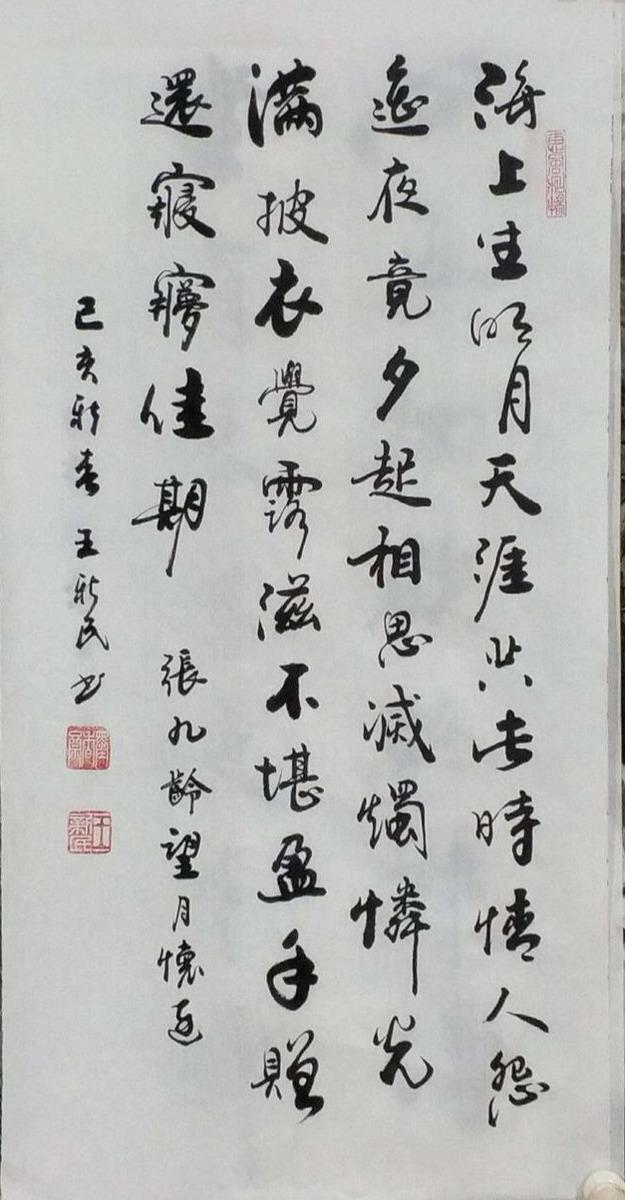 海上生明月天涯共此時情人怨
遙夜竟夕起相思滅燭憐光
滿披衣覺露滋不堪盈手贈
還寢夢佳期 張九齡望月懷遠
己亥新春王新民书
王新民